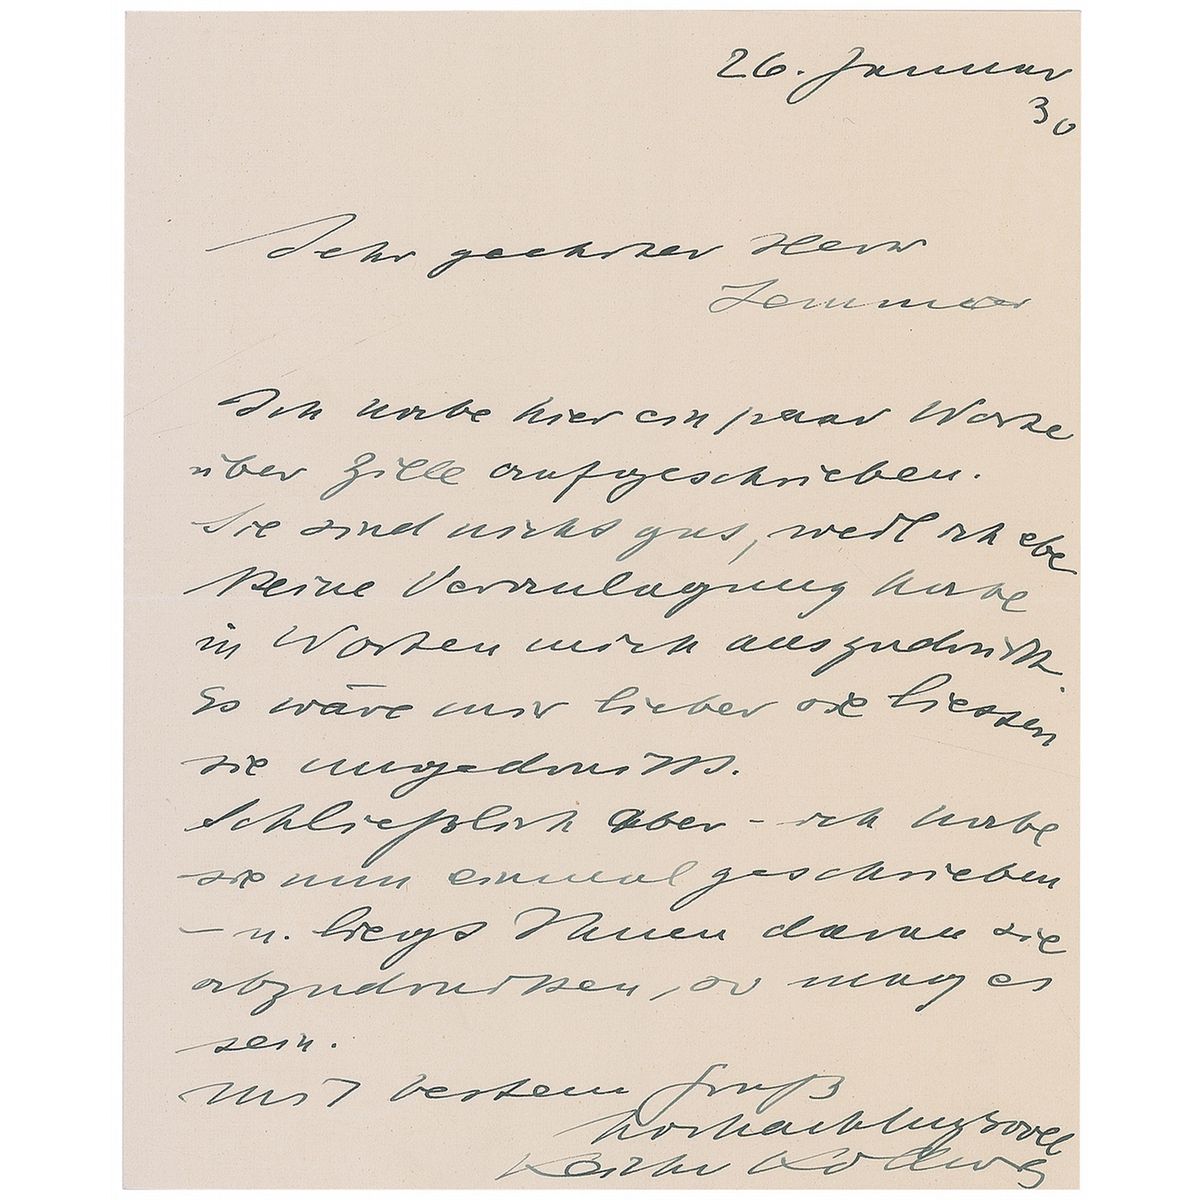 26. Januar
30
Sehr geehrter Herr
Lemmer
Ich habe hier ein paar Worte
über Zille aufgeschrieben.
Sie sind nicht gut, weil ich ebe
keine Veranlagung habe
in Worten mich auszudrück.
Es wäre mir lieber sie liessen
sie ungedruckt.
Schließlich aber – ich habe
sie nun einmal geschrieben
– u. liegt Ihnen daran sie
abzudrucken, so mag es
sein.
Mit bestem Gruß
hochachtungsvoll
Käthe Kollwitz